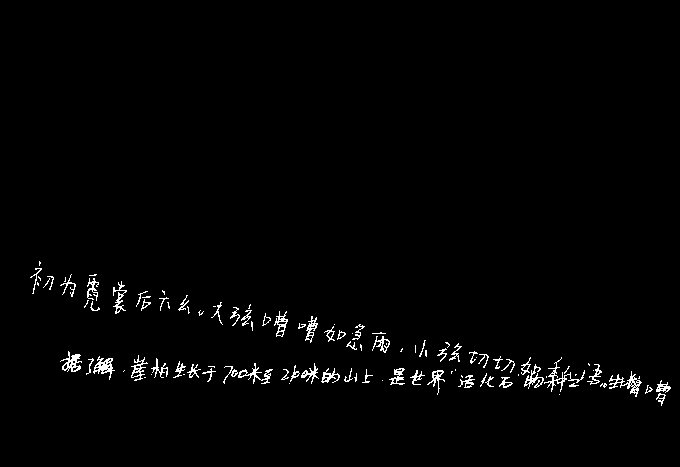 初为霓裳后六幺。大弦嘈嘈如急雨,小弦切切如私语。嘈嘈
据了解,崖柏生长于700米至2100米的山上,是世界“活化石”